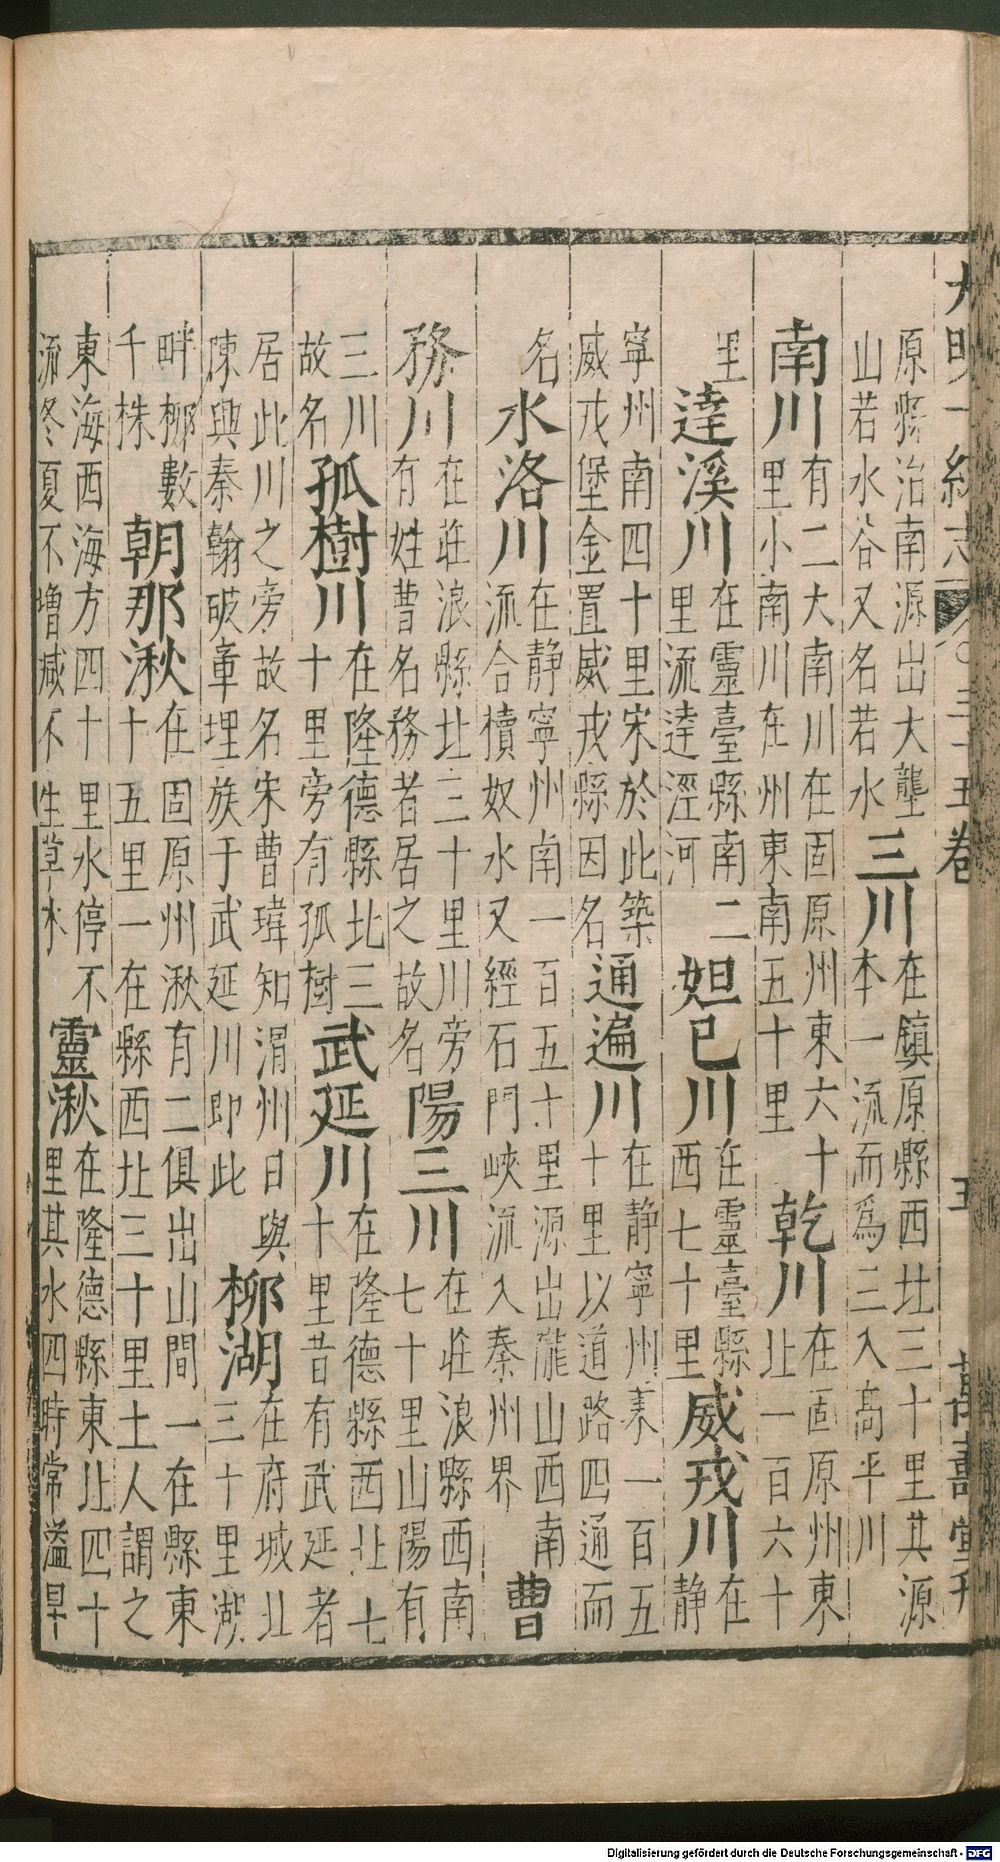 大明一統志 三十五卷 五 萬壽堂刊
原縣治南源出大壟
山若水谷又名若水
三川
在鎮原縣西北三十里其源
本一流而為三入高平川
南川
有二大南川在固原州東六十
里小南川在州東南五十里
乾川
在固原州東
北一百六十
里
達溪川
在靈臺縣南二
里流達涇河
妲已川
在靈臺縣
西七十里
威戎川
在
静
寧州南四十里宋於此築
威戎堡金置威戎縣因名
通遍川
在静寧州東一百五
十里以道路四通而
名
水洛川
在静寧州南一百五十里源出隴山西南
流合犢奴水又經石門峽流入秦州界
曹
務川
在莊浪縣北三十里川旁
有姓曹名務者居之故名
陽三川
在莊浪縣西南
七十里山陽有
三川
故名
孤樹川
在隆德縣北三
十里旁有孤樹
武延川
在隆德縣西北七
十里昔有武延者
居此川之旁故名宋曹瑋知渭州日與
陳興秦翰破章埋族于武延川即此
柳湖
在府城北
三十里湖
畔柳數
千株
朝那湫
在固原州湫有二俱出山間一在縣東
十五里一在縣西北三十里土人謂之
東海西海方四十里水停不
流冬夏不增減不生草木
靈湫
在隆德縣東北四十
里其水四時常溢旱
Digitalisierung gefördert durch die Deutsche Forschungsgemeinschaft - DFG